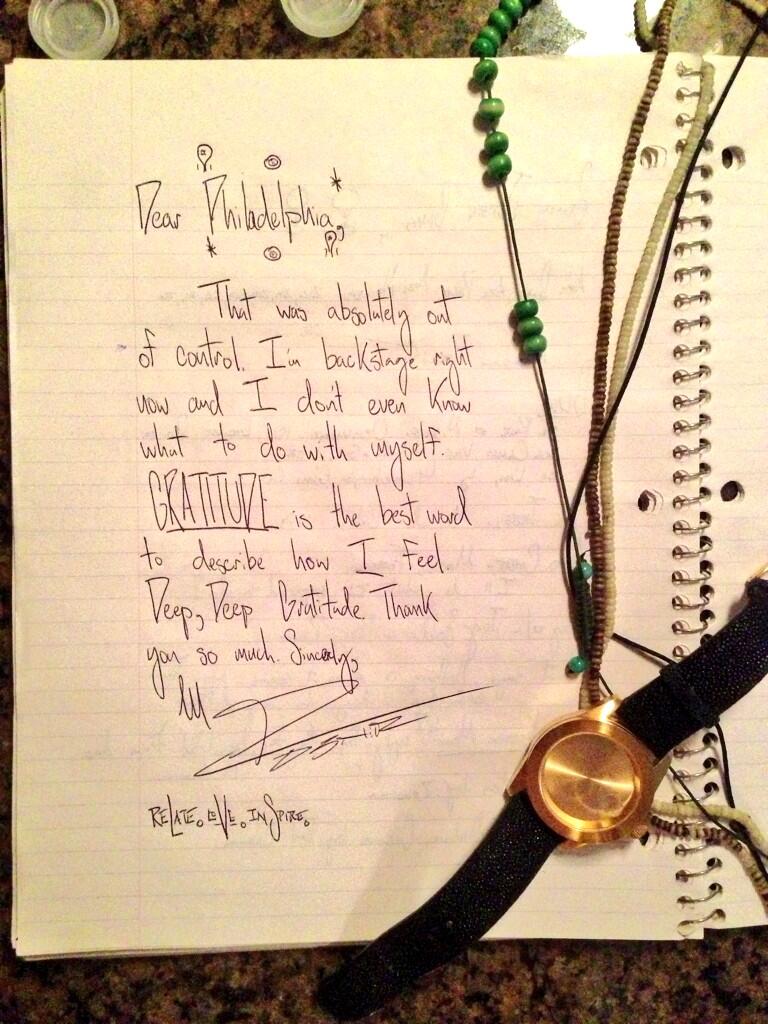 Dear Philadelphia,
That was absolutely out
of control. I'm backstage right
now and I don't even know
what to do with myself.
GRATITUDE is the best word
to describe how I feel.
Deep, Deep Gratitude. Thank
you so much. Sincerely,
RELATE. LEVE. INSPIRE.